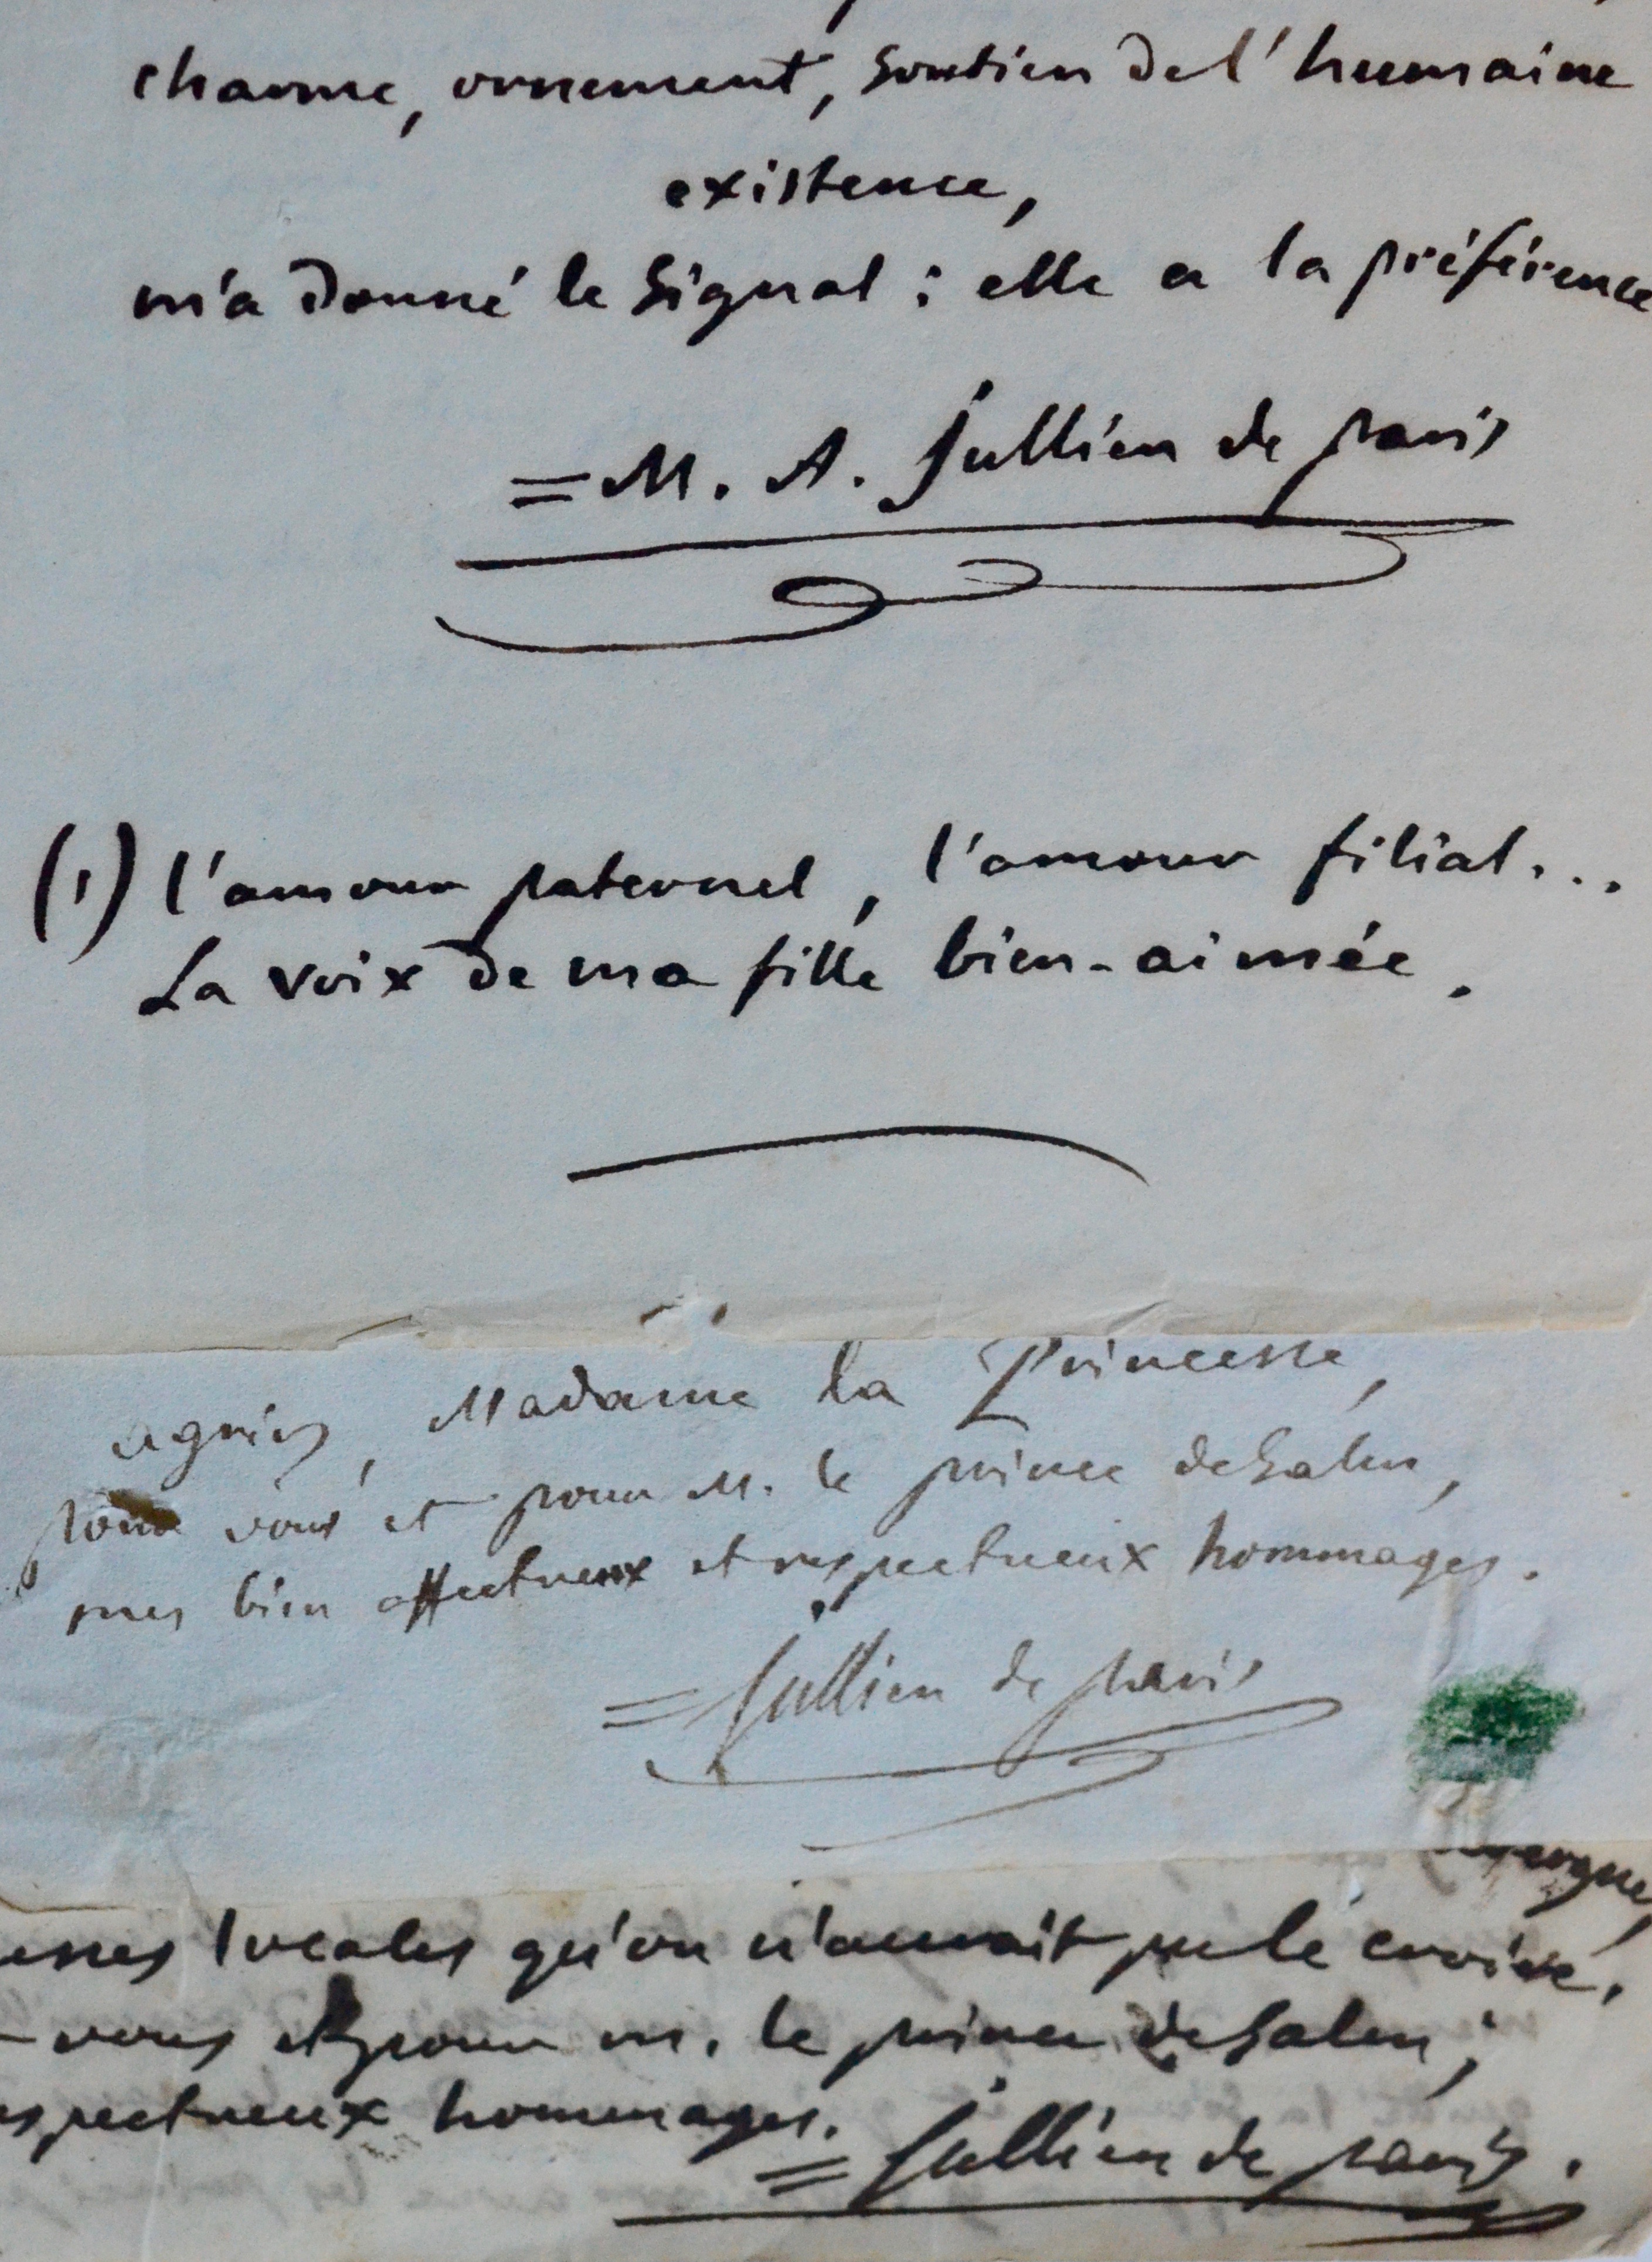 charme, ornement, soutien de l'humaine
existence,
m'a donné le signal : elle a la préférence
= M. A. Jullien de paris
(1) l'amour paternel, l'amour filial...
La voix de ma fille bien-aimée.
agréez, Madame la Princesse,
pour vous et pour M. le prince de Salm,
mes bien affectueux et respectueux hommages.
= Jullien de paris
locales qu'on n'aurait pu le croire.
vous et pour m. le prince de Salm ;
espectueux hommages.
= Jullien de paris.